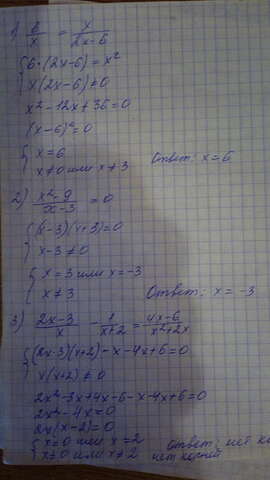 1) 6/x = x/(2x-6)
{ 6·(2x-6) = x²
x(2x-6) ≠ 0
x² - 12x + 36 = 0
(x-6)² = 0
{ x = 6
x ≠ 0 или x ≠ 3 Ответ: x = 6
2) (x²-9)/(x-3) = 0
{ (x-3)(x+3) = 0
x-3 ≠ 0
{ x = 3 или x = -3
x ≠ 3 Ответ: x = -3
3) (2x-3)/x - 1/(x+2) = (4x-6)/(x²+2x)
{ (2x-3)(x+2) - x - 4x + 6 = 0
x(x+2) ≠ 0
2x² - 3x + 4x - 6 - x - 4x + 6 = 0
2x² - 4x = 0
2x(x-2) = 0
{ x = 0 или x = 2 Ответ: нет
x ≠ 0 или x ≠ 2 нет корней